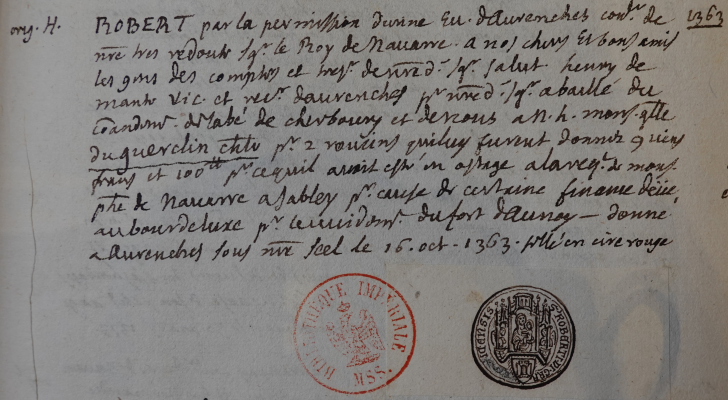 orig. H. ROBERT par la permission divine Ev. d'aurenches cons.r de 1363
nre tres redoute sgr. le Roy de Navarre. a nos chers Et bons amis
les gens des comptes et tres.r de nred. sgr. salut henry de
mante vic. et rec.r daurenches pr. nred. sgr. a baillé du
comandemt. de labé de cherbourg et de nous a n.h. mons. glle
du guerclin chlr pr. 2 roucins qui luy furent donnez
frans et 100 pr. ce quil avoit esté en ostage a la req. de mons.
phe de Navarre a sabley pr. cause de certaine finance deüe
au bourdeluxe pr. le vuidemt. du fort daunoy — donné
a Aurenches sous nre scel le 16. oct. 1363. sellé en cire rouge
BIBLIOTHÈQUE IMPÉRIALE
MSS.